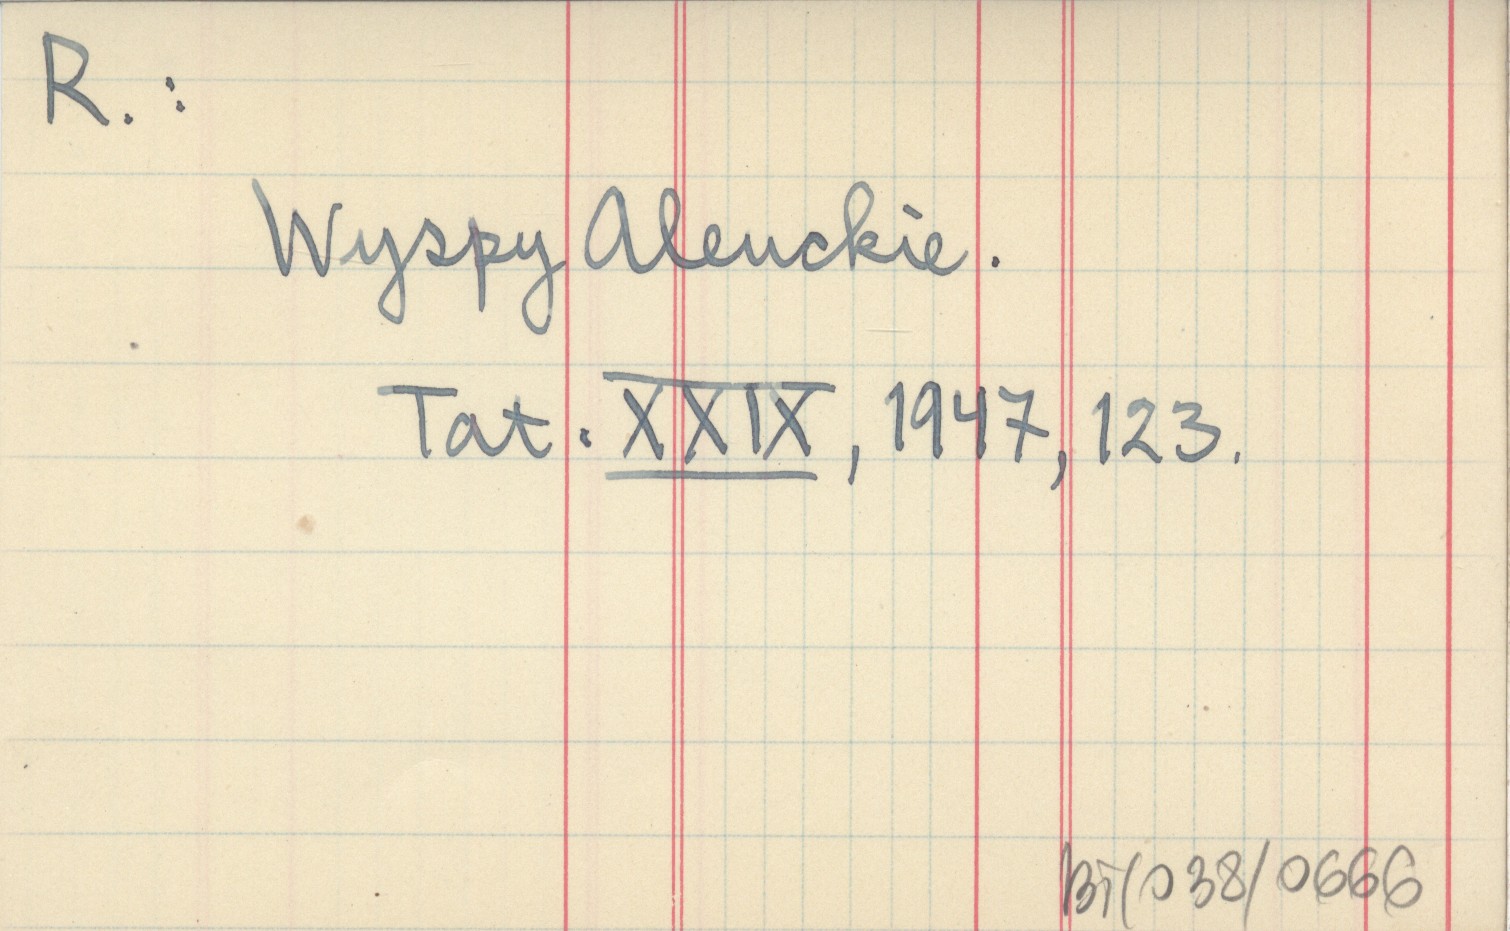 R.:
Wyspy Aleuckie.
Tat. XXIX, 1947, 123.
BT/038/0666